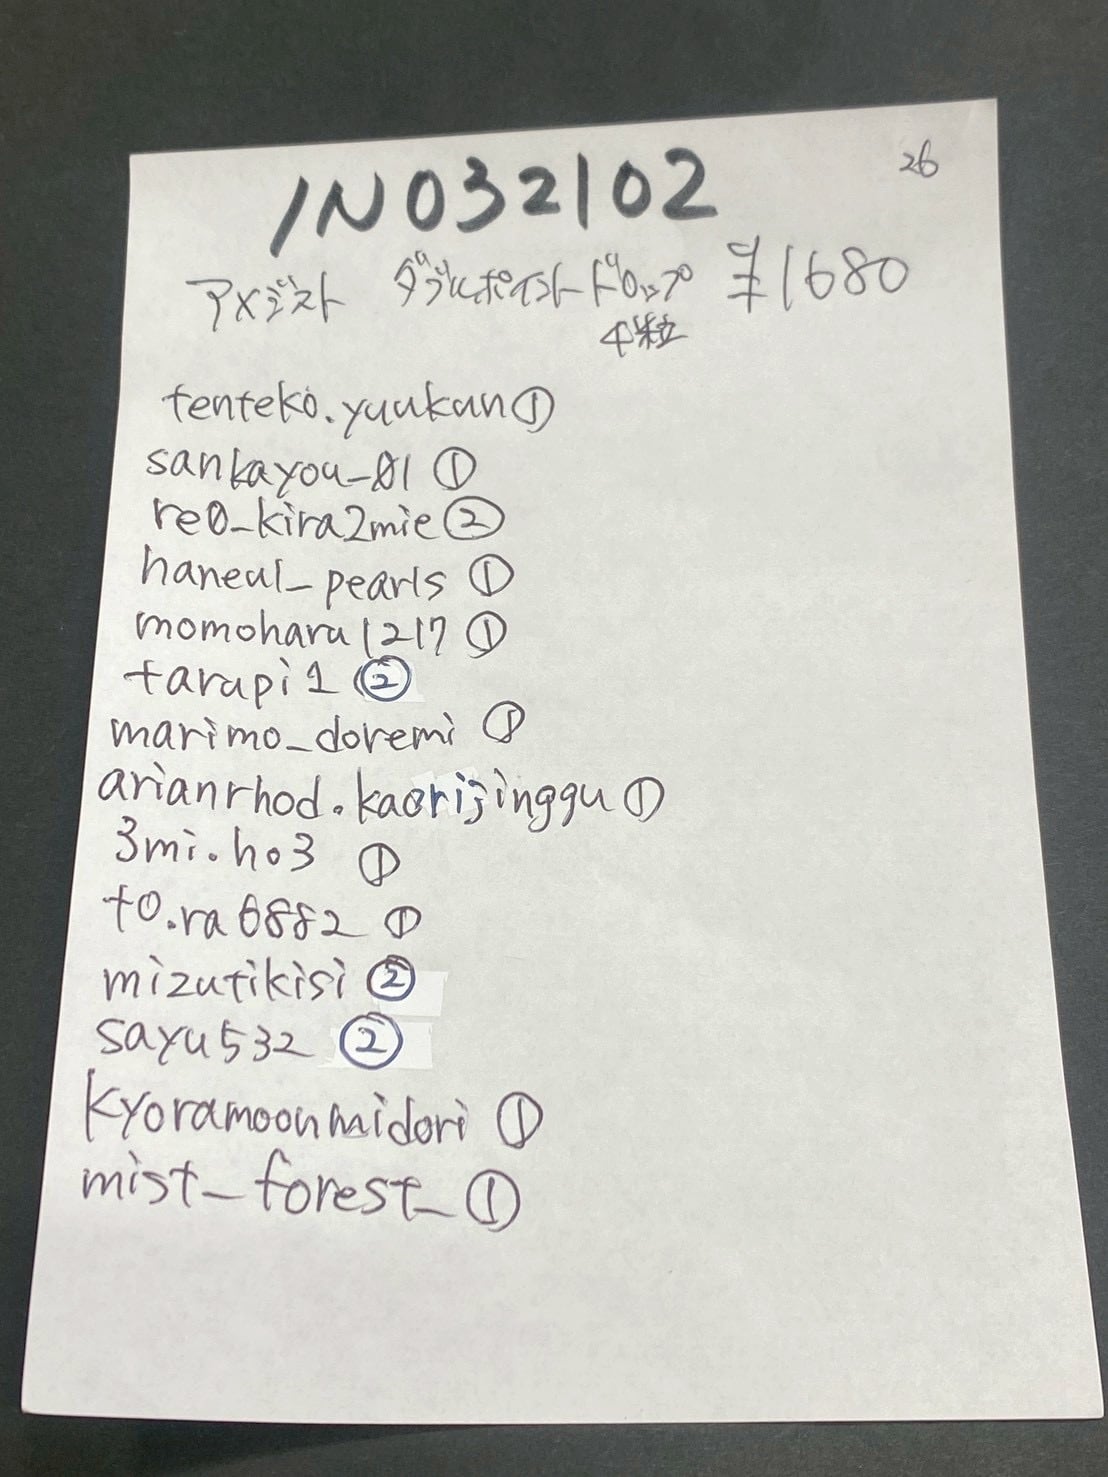 26
IN032102
アメジスト ダブルポイントドロップ ¥1680
中粒
tenteko.yuukun①
sankayou_01 ①
re0_kira2mie②
haneul_pearls ①
momoharu1217 ①
tarupi1 ②
marimo_doremi ①
arianrhod.kaorijinggu①
3mi.ho3 ①
to.ra6882 ①
mizutikisi ②
sayu532 ②
kyoramoonmidori ①
mist_forest_①